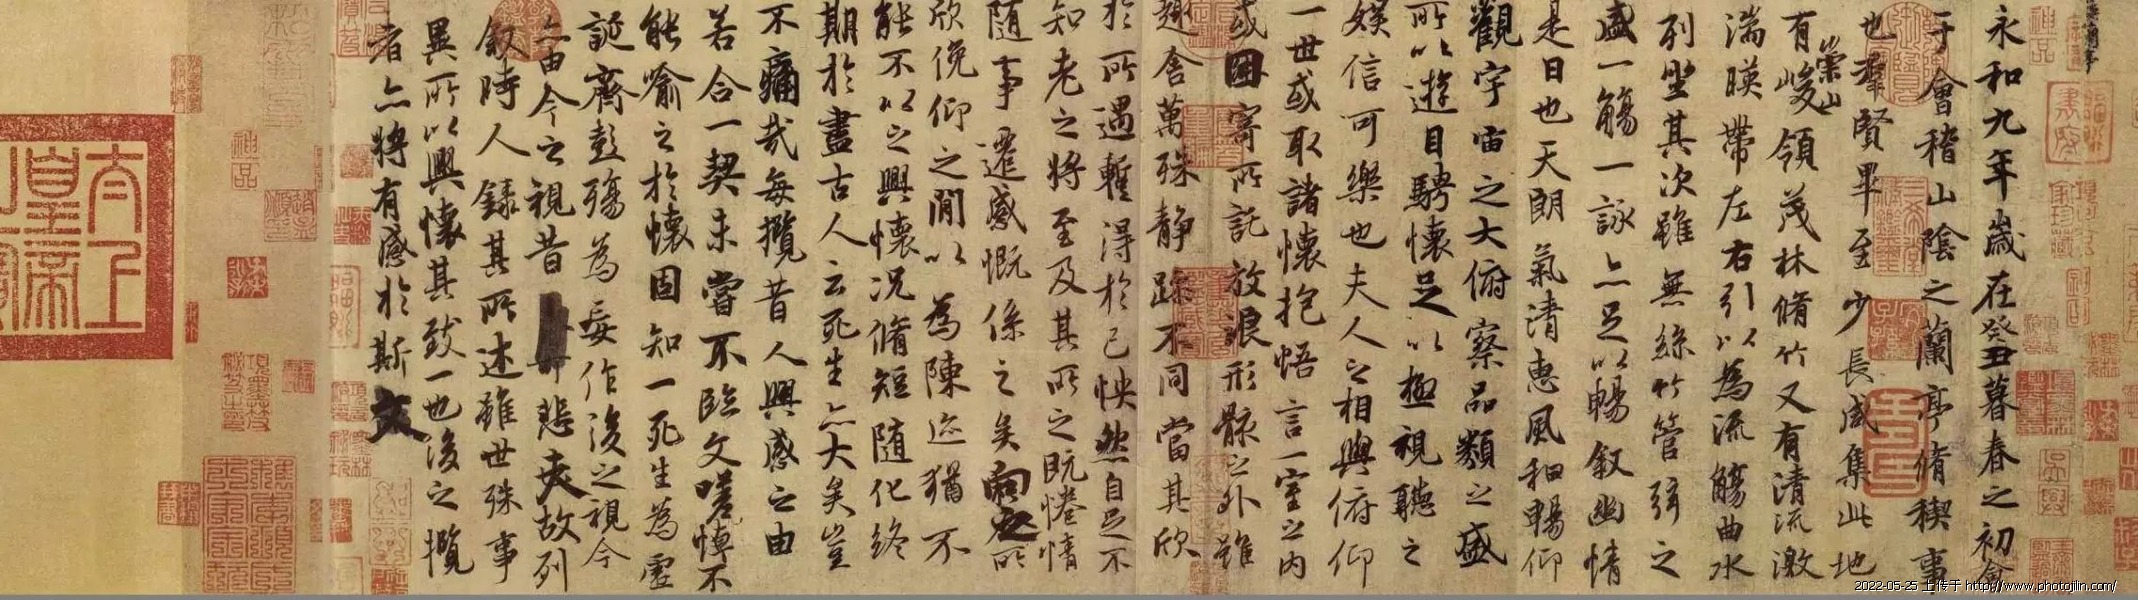 永和九年歲在癸丑暮春之初會
于會稽山陰之蘭亭脩稧事
也羣賢畢至少長咸集此地
有崇山峻領茂林脩竹又有清流激
湍暎帶左右引以為流觴曲水
列坐其次雖無絲竹管弦之
盛一觴一詠亦足以暢敘幽情
是日也天朗氣清惠風和暢仰
觀宇宙之大俯察品類之盛
所以遊目騁懷足以極視聽之
娛信可樂也夫人之相與俯仰
一世或取諸懷抱悟言一室之內
或因寄所託放浪形骸之外雖
趣舍萬殊靜躁不同當其欣
於所遇蹔得於己怏然自足不
知老之將至及其所之既惓情
隨事遷感慨係之矣向之所
欣俛仰之閒以為陳迹猶不
能不以之興懷況脩短隨化終
期於盡古人云死生亦大矣豈
不痛哉每攬昔人興感之由
若合一契未嘗不臨文嗟悼不
能喻之於懷固知一死生為虛
誕齊彭殤為妄作後之視今
亦由今之視昔悲夫故列
敘時人錄其所述雖世殊事
異所以興懷其致一也後之攬
者亦將有感於斯文
太上皇帝
神品
神品
2022-05-25 上传于 http://www.photojilin.com/